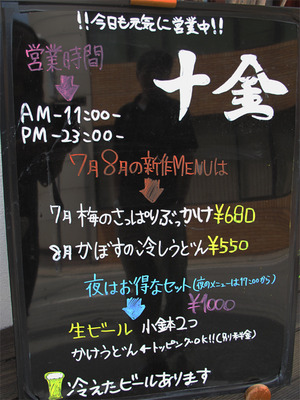 !!今日も元気に営業中!!
営業時間
十金
AM-11:00-
PM-23:00-
7月8月の新作MENUは
7月 梅のさっぱりぶっかけ ¥680
8月 かぼすの冷しうどん ¥550
夜はお得なセット(夜のメニューは17:00から)
¥1000
生ビール 小鉢2つ
かけうどん←トッピングOK!!(別料金)
冷えたビールあります